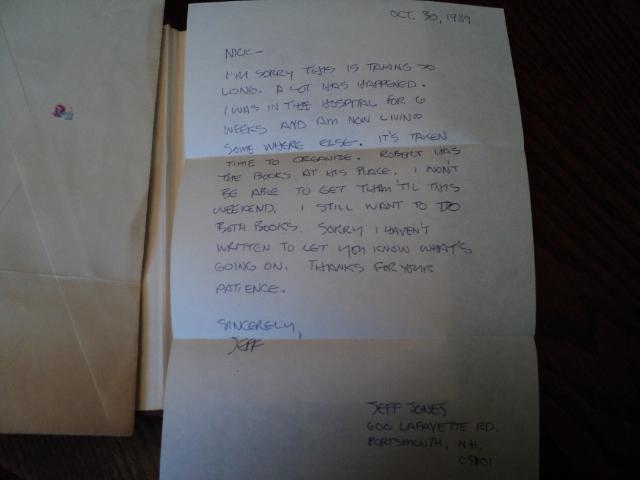 OCT. 30, 1989
NICK—
I'M SORRY THIS IS TAKING SO
LONG. A LOT HAS HAPPENED.
I WAS IN THE HOSPITAL FOR 6
WEEKS AND AM NOW LIVING
SOME WHERE ELSE. IT'S TAKEN
TIME TO ORGANIZE. ROBERT HAS
THE BOOKS AT HIS PLACE. I WON'T
BE ABLE TO GET THEM 'TIL THIS
WEEKEND. I STILL WANT TO DO
BOTH BOOKS. SORRY I HAVEN'T
WRITTEN TO LET YOU KNOW WHAT'S
GOING ON. THANKS FOR YOUR
PATIENCE.
SINCERELY,
JEFF
JEFF JONES
600 LAFAYETTE RD.
PORTSMOUTH, N.H.
03801